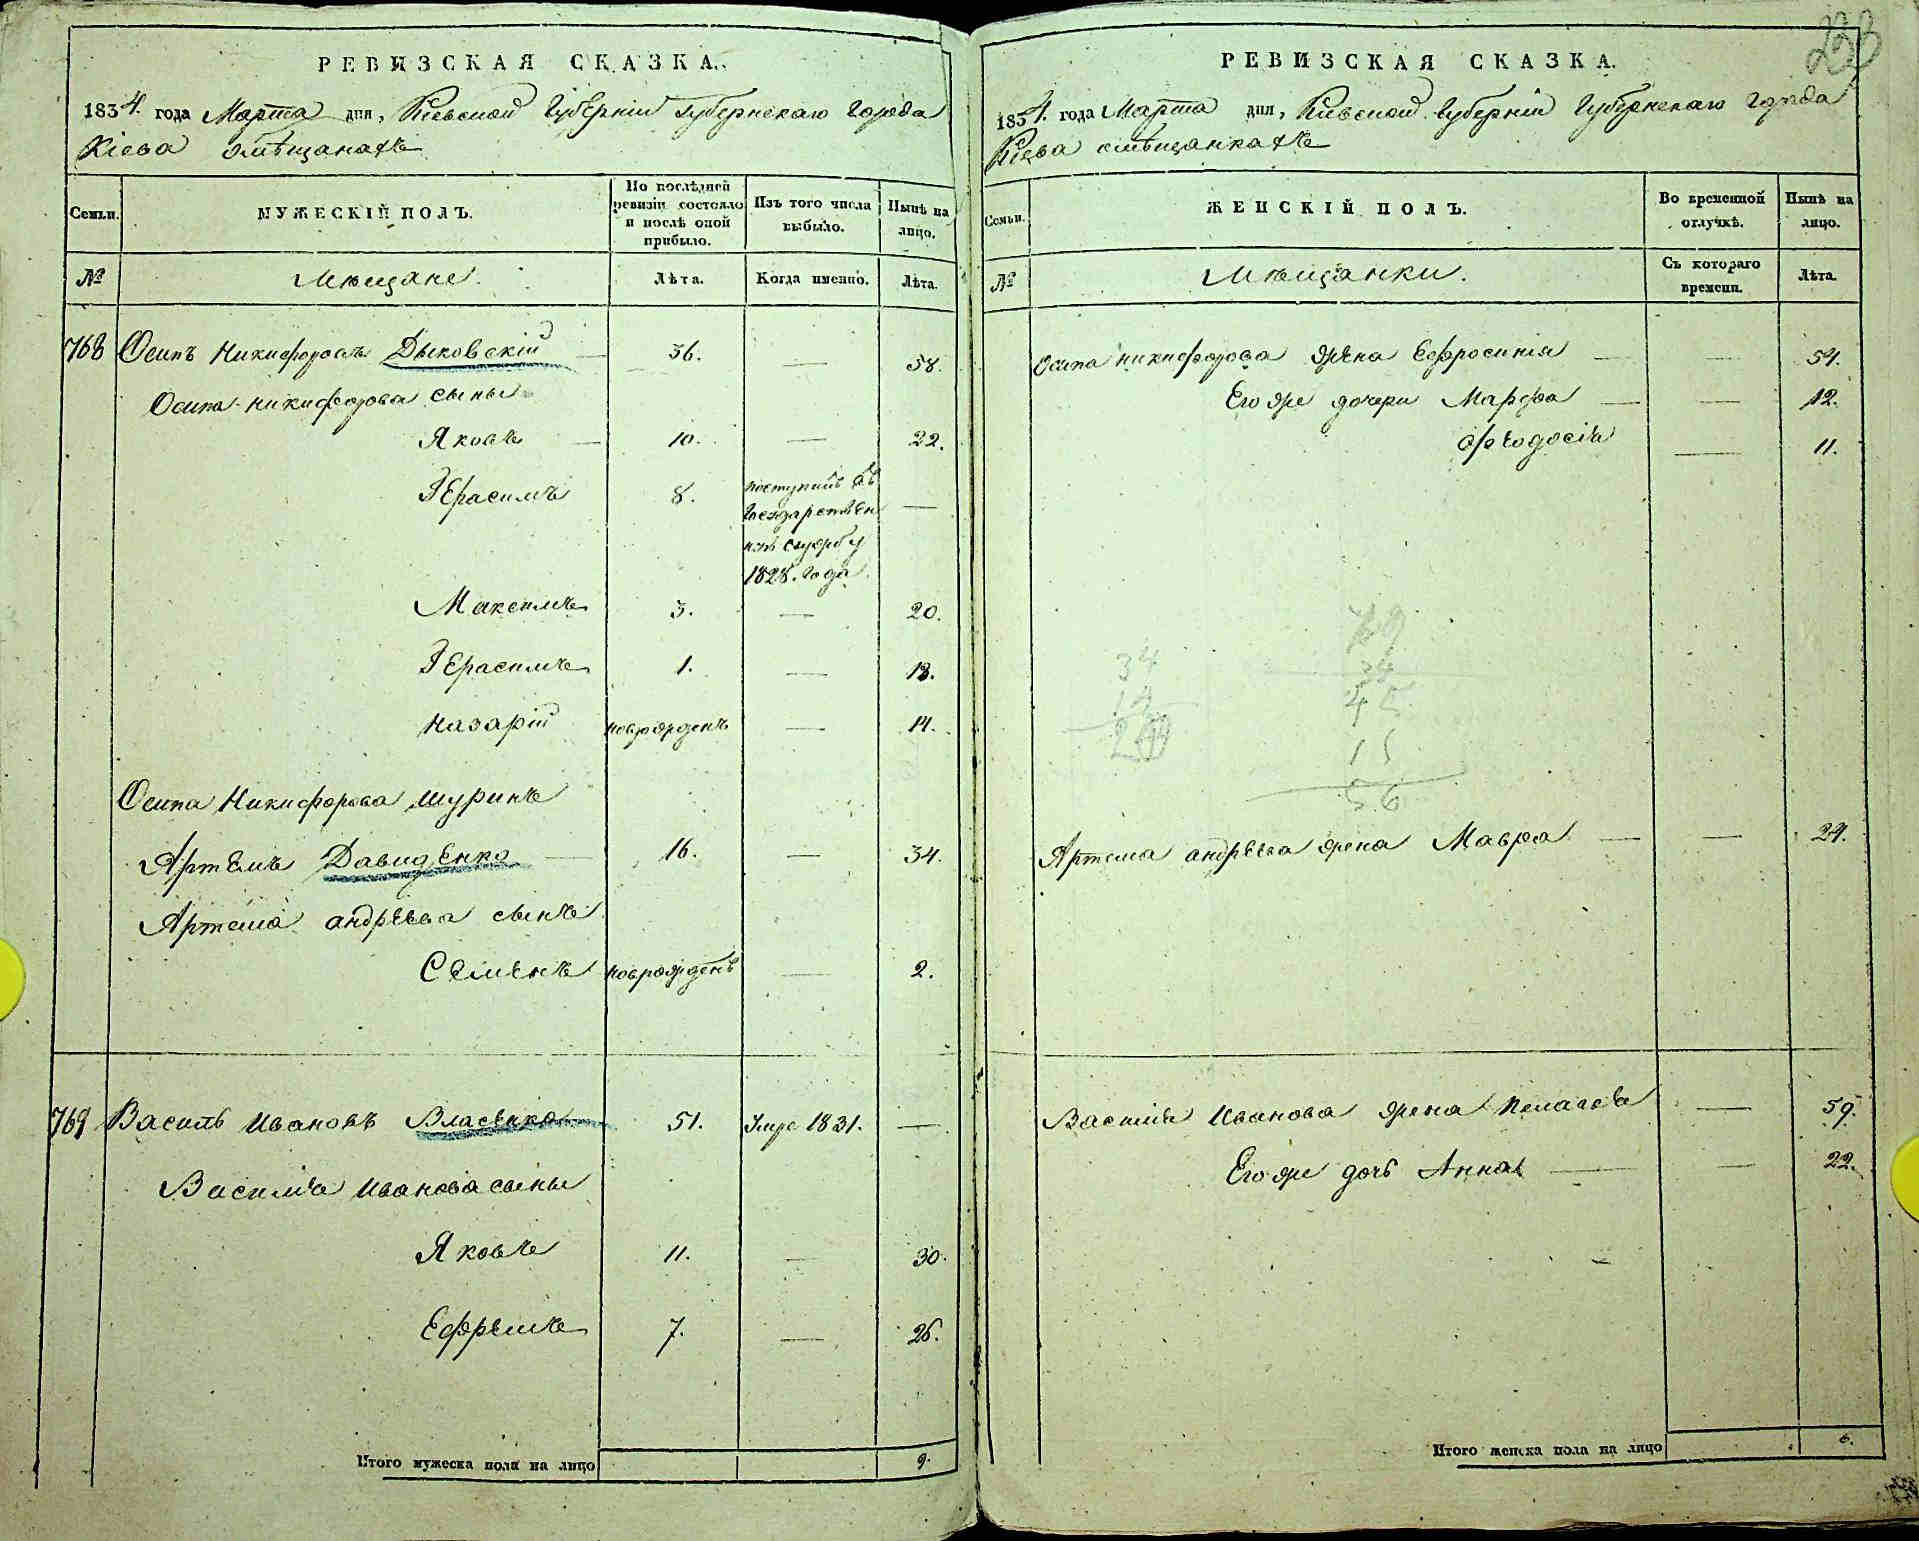 РЕВИЗСКАЯ СКАЗКА.
1834. года Марта дня, Кіевской Губерніи губернскаго Города
Кіева о мѣщанахъ
Семьи.
МУЖЕСКІЙ ПОЛЪ.
По послѣдней ревизіи состояло и послѣ оной прибыло.
Изъ того числа выбыло.
Нынѣ на лицо.
№
Мѣщане.
Лѣта.
Когда именно.
Лѣта.
768 Осипъ Никифоровъ Дыковскій — 36. — 58.
Осипа Никифорова сыны
Яковъ — 10. — 22.
Герасимъ 8. поступилъ въ Государственную службу 1828. года —
Максимъ 3. — 20.
Герасимъ 1. — 18.
Назарій новрожденъ — 14.
Осипа Никифорова шуринъ
Артемъ Давиденко — 16. — 34.
Артема андреева сынъ
Семенъ новрожденъ — 2.
769 Василь Ивановъ Власенко 51. Умре 1831. —
Василія Иванова сыны
Яковъ 11. — 30.
Ефремъ 7. — 26.
Итого мужеска пола на лицо 9.
233
РЕВИЗСКАЯ СКАЗКА.
1834. года Марта дня, Кіевской губерніи Губернскаго города
Кіева о мѣщанкахъ
Семьи.
ЖЕНСКІЙ ПОЛЪ.
Во временной отлучкѣ.
Нынѣ на лицо.
№
Мѣщанки.
Съ котораго времени.
Лѣта.
Осипа никифорова жена Ефросинія — — 54.
Его же дочери Марфа — — 12.
Феодосія — 11.
79
34
34
45
14
11
20
56
Артема андреева жена Мавра — — 24.
Василія Иванова жена Пелагея — 59.
Его же дочь Анна — — 22.
Итого женска пола на лицо 6.